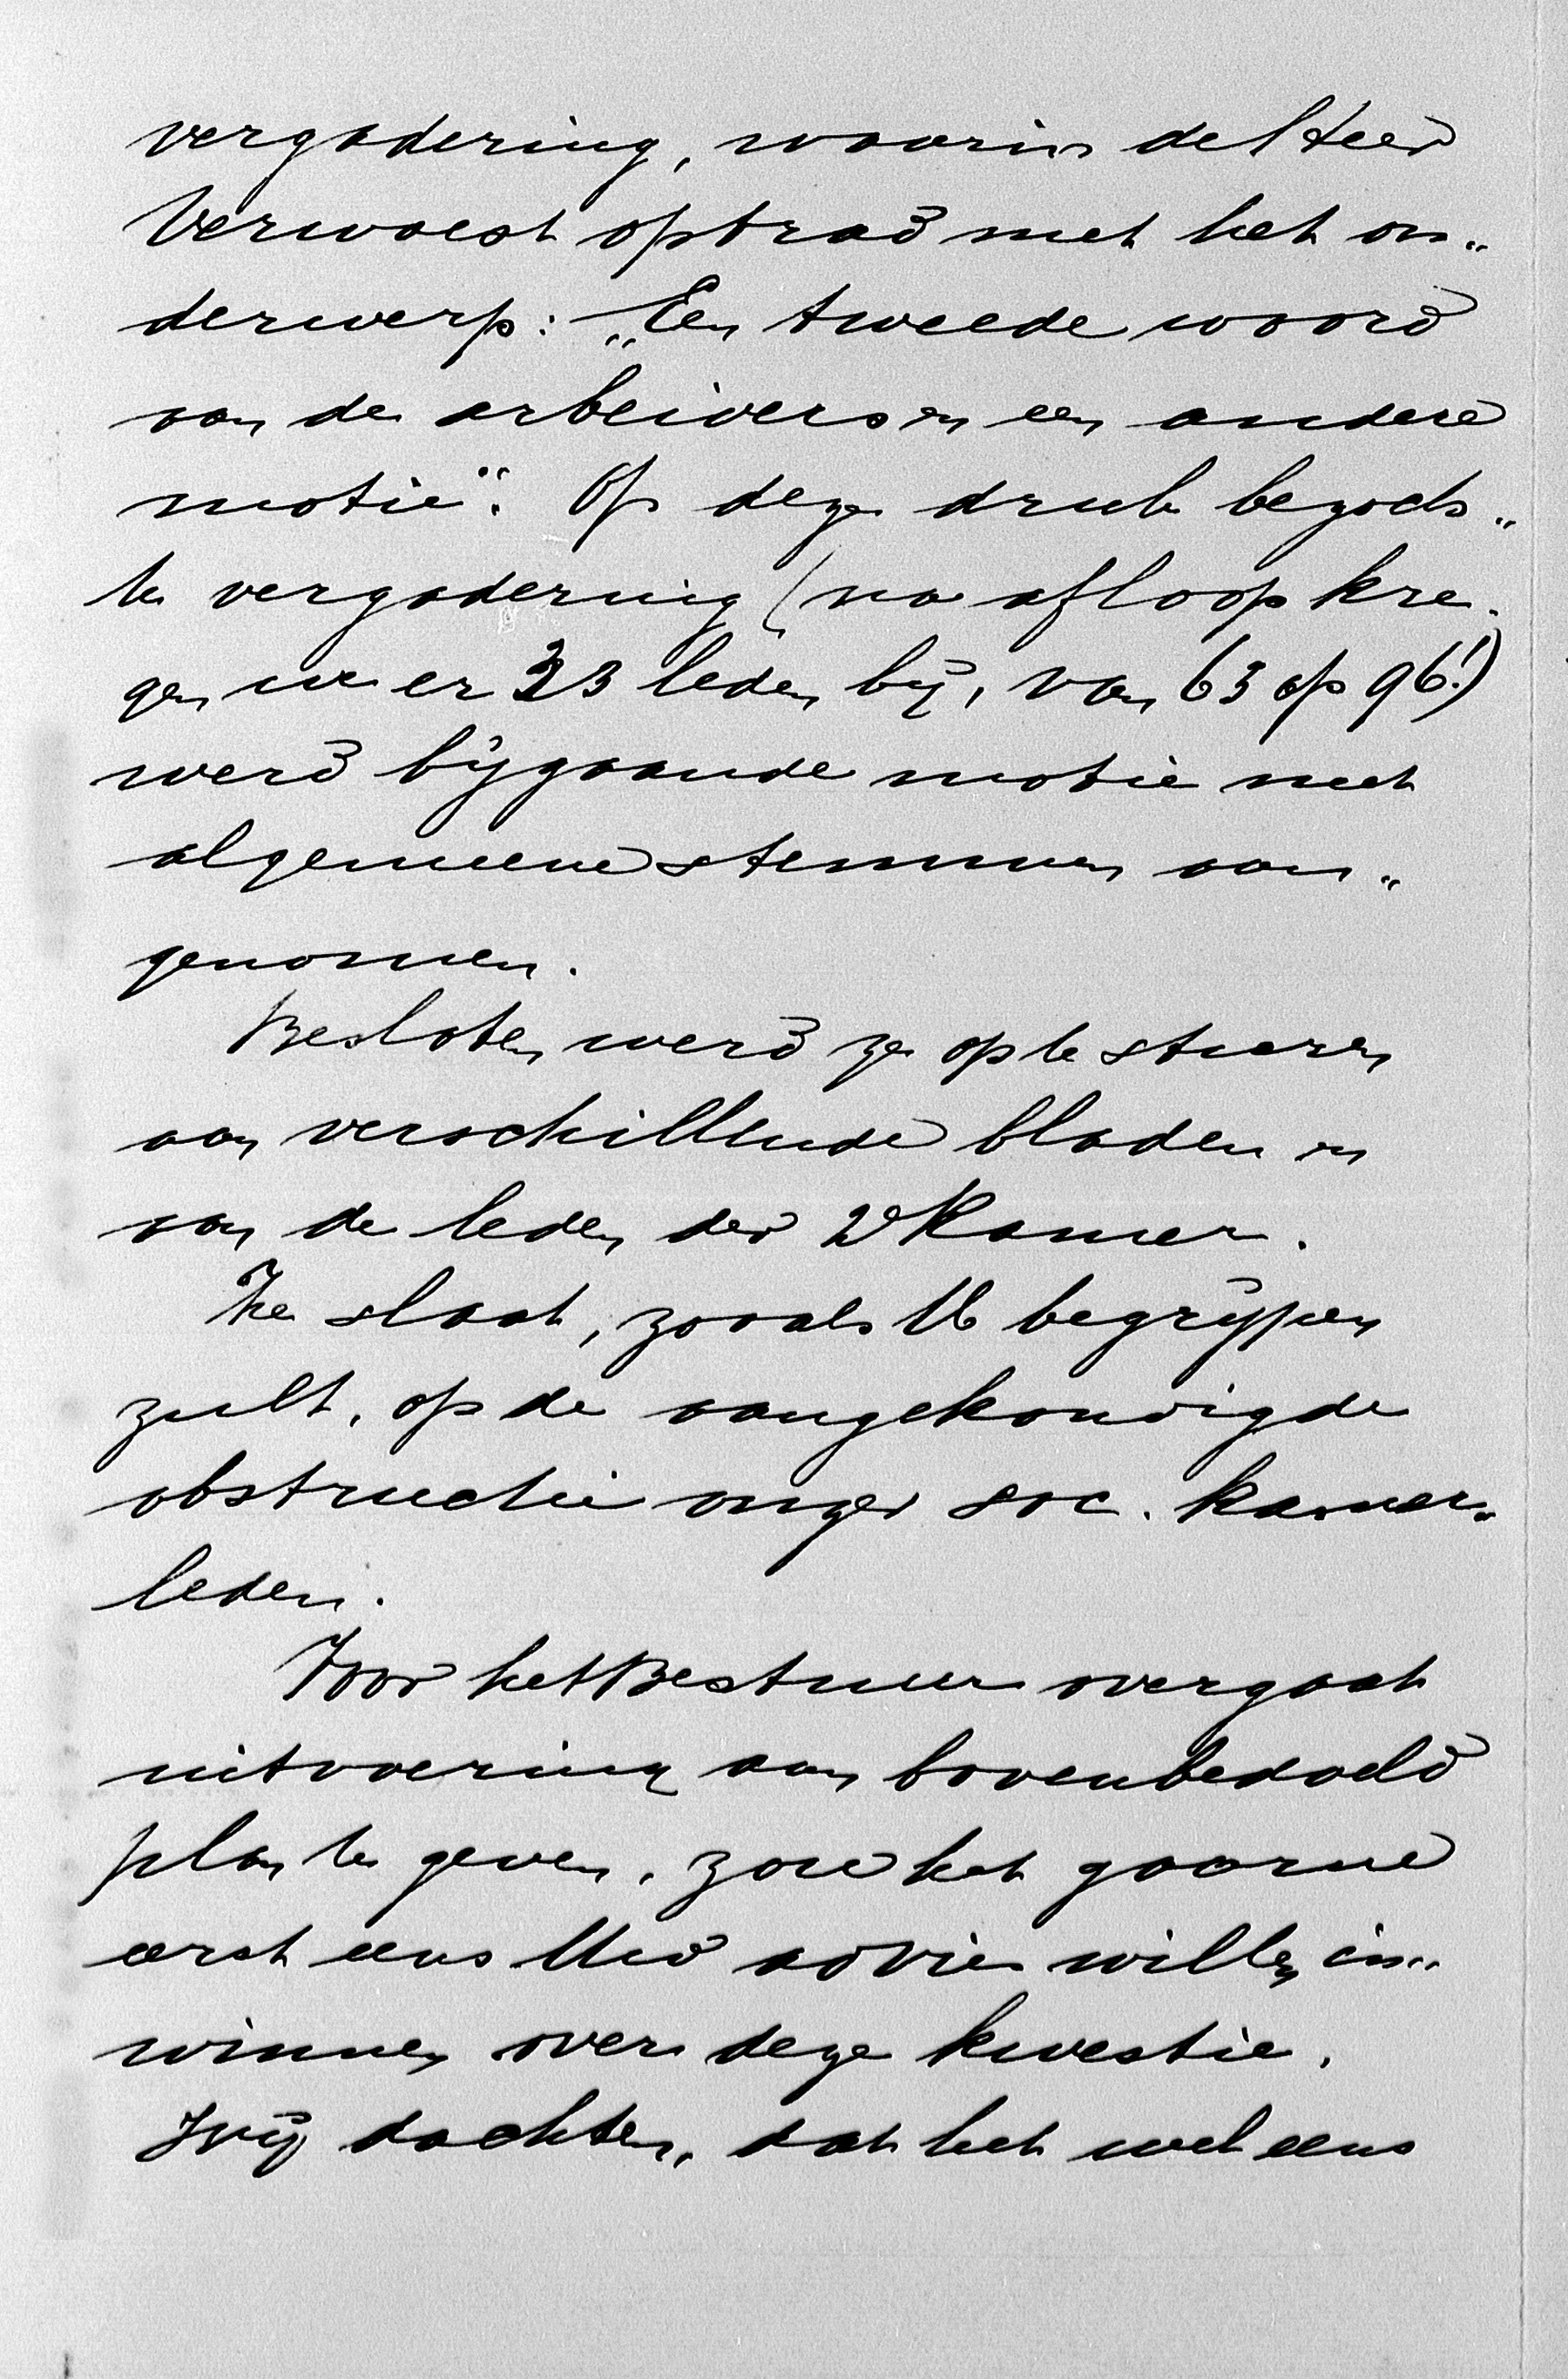 vergadering, waarin de Heer
Verwoest optrad met het on„
derwerp: „Een tweede woord
aan de arbeiders en een andere
motie". Op deze druk bezoch„
te vergadering (na afloop kre-
gen we er 33 leden bij, van 63 op 96!)
werd bijgaande motie met
algemeene stemmen aan„
genomen.
Besloten werd ze op te sturen
aan verschillende bladen en
aan de leden der 2e Kamer.
Ze slaat, zooals U begrijpen
zult, op de aangekondigde
obstructie onzer soc. kamer„
leden.
Voor het Bestuur overgaat
uitvoering aan bovenbedoeld
plan te geven, zou het gaarne
eerst eens Uw advies willen in„
winnen over deze kwestie.
Wij dachten, dat het wel eens